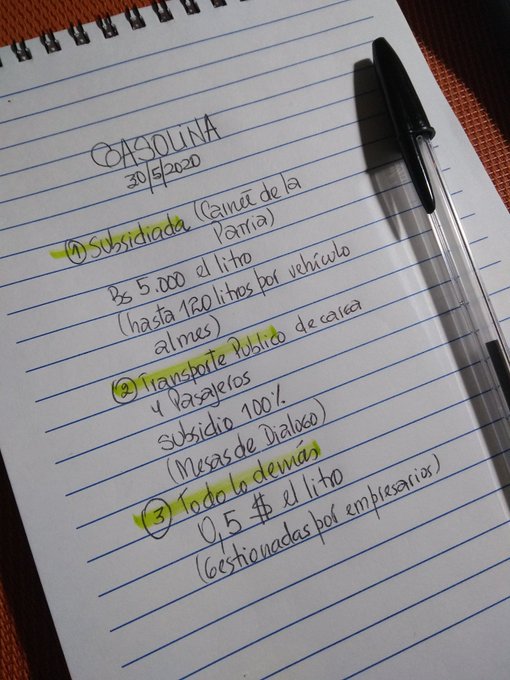 GASOLINA
30/5/2020
① Subsidiada (Carnét de la
Patria)
Bs 5.000 el litro
(hasta 120 litros por vehículo
al mes)
② Transporte Publico de carga
y Pasajeros
subsidio 100%
(Mesas de Dialogo)
③ Todo lo demás
0,5 $ el litro
(Gestionadas por empresarios)